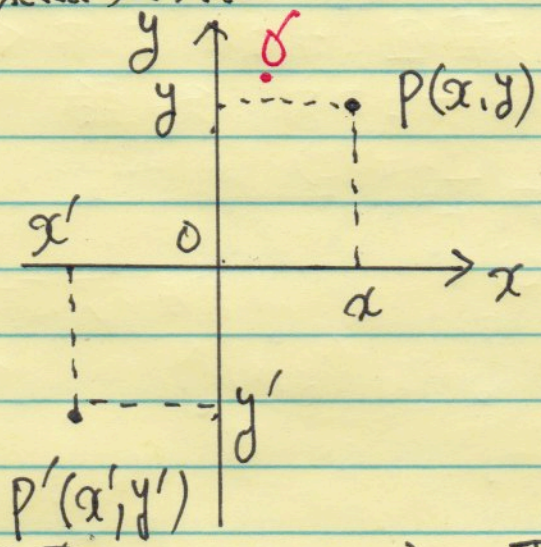 y
y
P(x,y)
x'
0
x
x
y'
P'(x',y')